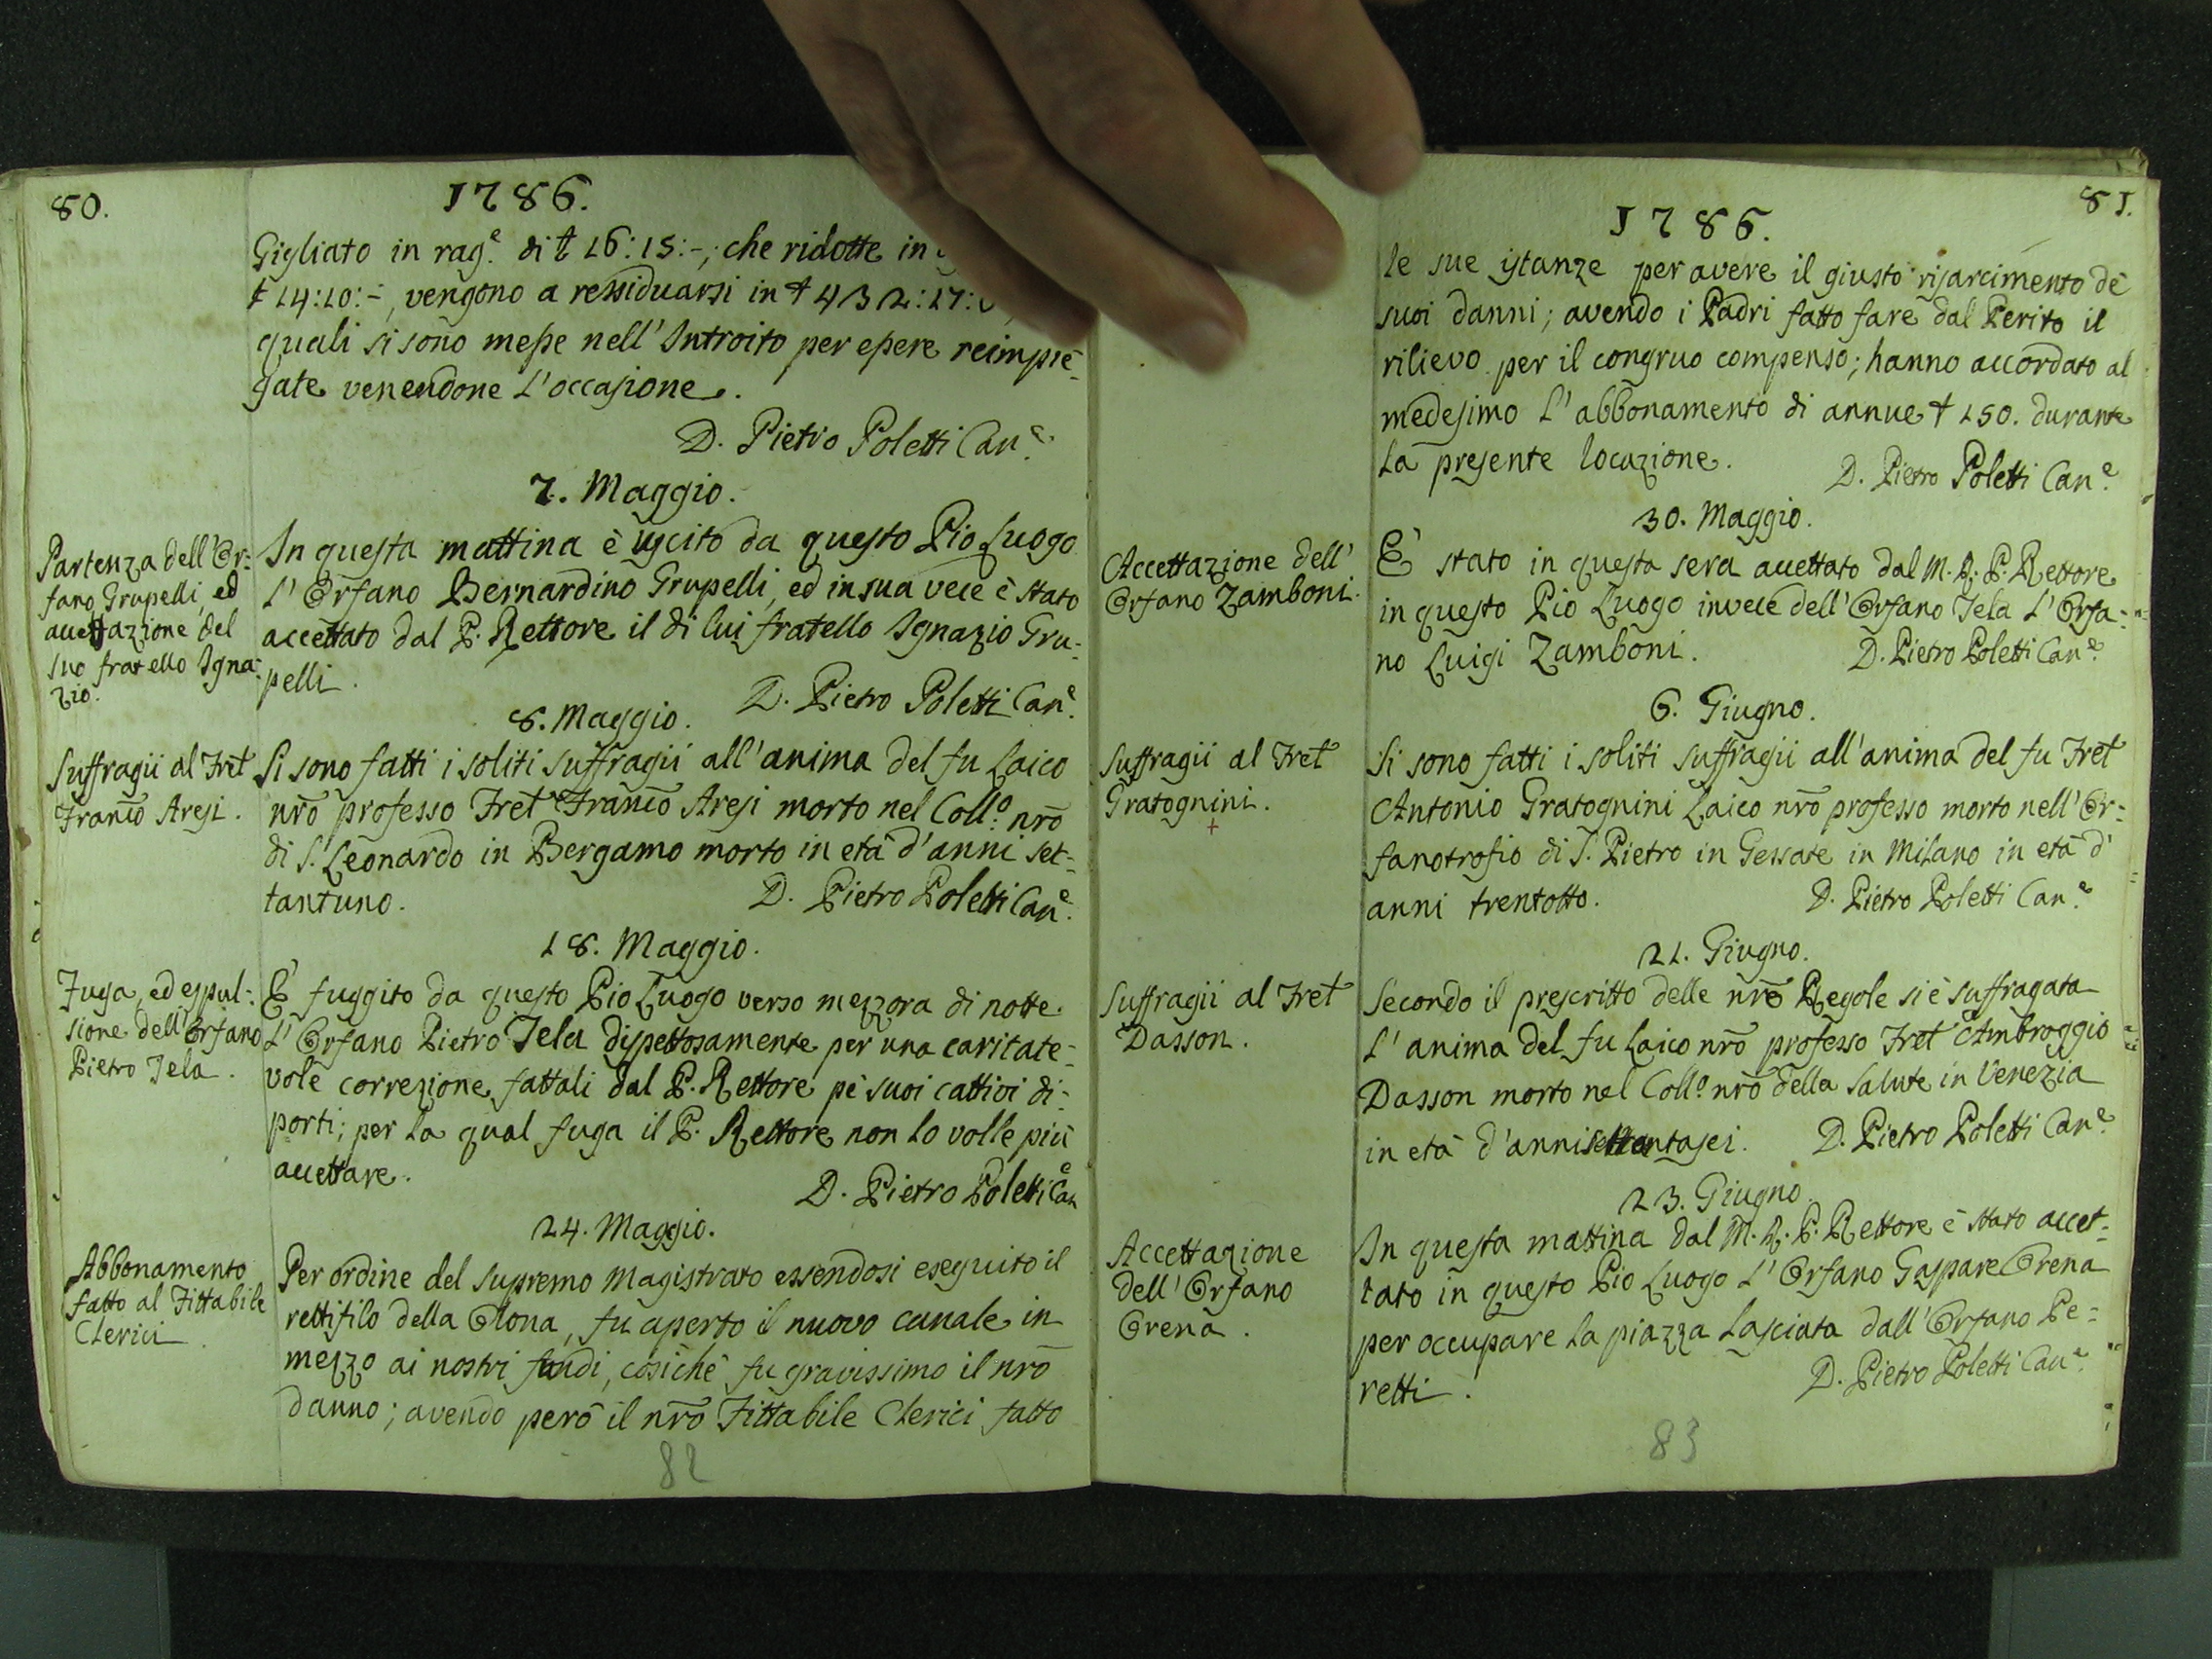 80.
1786.
Gigliato in rag.e di £ 16:15:-, che ridotte in
£ 14:10:-, vengono a residuarsi in £ 432:17:
quali si sono messe nell'Introito per essere reimpie-
gate venendone l'occasione.
D. Pietro Poletti Can.e
7. Maggio.
Partenza dell'Or-
fano Grupelli, ed
accettazione del
suo fratello Igna-
zio.
In questa mattina è uscito da questo Pio Luogo
l'Orfano Bernardino Grupelli, ed in sua vece è stato
accettato dal P. Rettore il di lui fratello Ignazio Gru-
pelli.
D. Pietro Poletti Can.e
8. Maggio.
Suffragii al Fret
Franco Aresi.
Si sono fatti i soliti suffragii all'anima del fu Laico
nrō professo Fret Franco Aresi morto nel Coll.o nrō
di S. Leonardo in Bergamo morto in età d'anni set-
tantuno.
D. Pietro Poletti Can.e
18. Maggio.
Fuga, ed espul-
sione dell'Orfano
Pietro Tela.
E' fuggito da questo Pio Luogo verso mezzora di notte
l'Orfano Pietro Tela dispettosamente per una caritate-
vole correzione fattali dal P. Rettore pè suoi cattivi di-
porti; per la qual fuga il P. Rettore non lo volle più
accettare.
D. Pietro Poletti Can.e
24. Maggio.
Abbonamento
fatto al Fittabile
Clerici
Per ordine del Supremo Magistrato essendosi eseguito il
rettifilo della Olona, fu aperto il nuovo canale in
mezzo ai nostri fondi, cosichè fu gravissimo il nrō
danno; avendo però il nrō Fittabile Clerici fatto
82
81.
1786.
le sue istanze per avere il giusto risarcimento dè
suoi danni; avendo i Padri fatto fare dal Perito il
rilievo per il congruo compenso; hanno accordato al
medesimo l'abbonamento di annue £ 150. durante
la presente locazione.
D. Pietro Poletti Can.e
30. Maggio.
Accettazione dell'
Orfano Zamboni.
E' stato in questa sera accettato dal M. R. P. Rettore
in questo Pio Luogo invece dell'Orfano Tela l'Orfa-
no Luigi Zamboni.
D. Pietro Poletti Can.e
6. Giugno.
Suffragii al Fret
Gratognini.
Si sono fatti i soliti suffragii all'anima del fu Fret
Antonio Gratognini Laico nrō professo morto nell'Or-
fanotrofio di S. Pietro in Gessate in Milano in età d'
anni trentotto.
D. Pietro Poletti Can.e
21. Giugno.
Suffragii al Fret
Dasson.
Secondo il prescritto delle nrē Regole si è suffragata
l'anima del fu Laico nrō professo Fret Ambroggio
Dasson morto nel Coll.o nrō della Salute in Venezia
in età d'anni settantasei.
D. Pietro Poletti Can.e
23. Giugno.
Accettazione
dell'Orfano
Orena.
In questa mattina dal M. R. P. Rettore è stato accet-
tato in questo Pio Luogo l'Orfano Gaspare Orena
per occupare la piazza lasciata dall'Orfano Pe-
retti.
D. Pietro Poletti Can.e
83